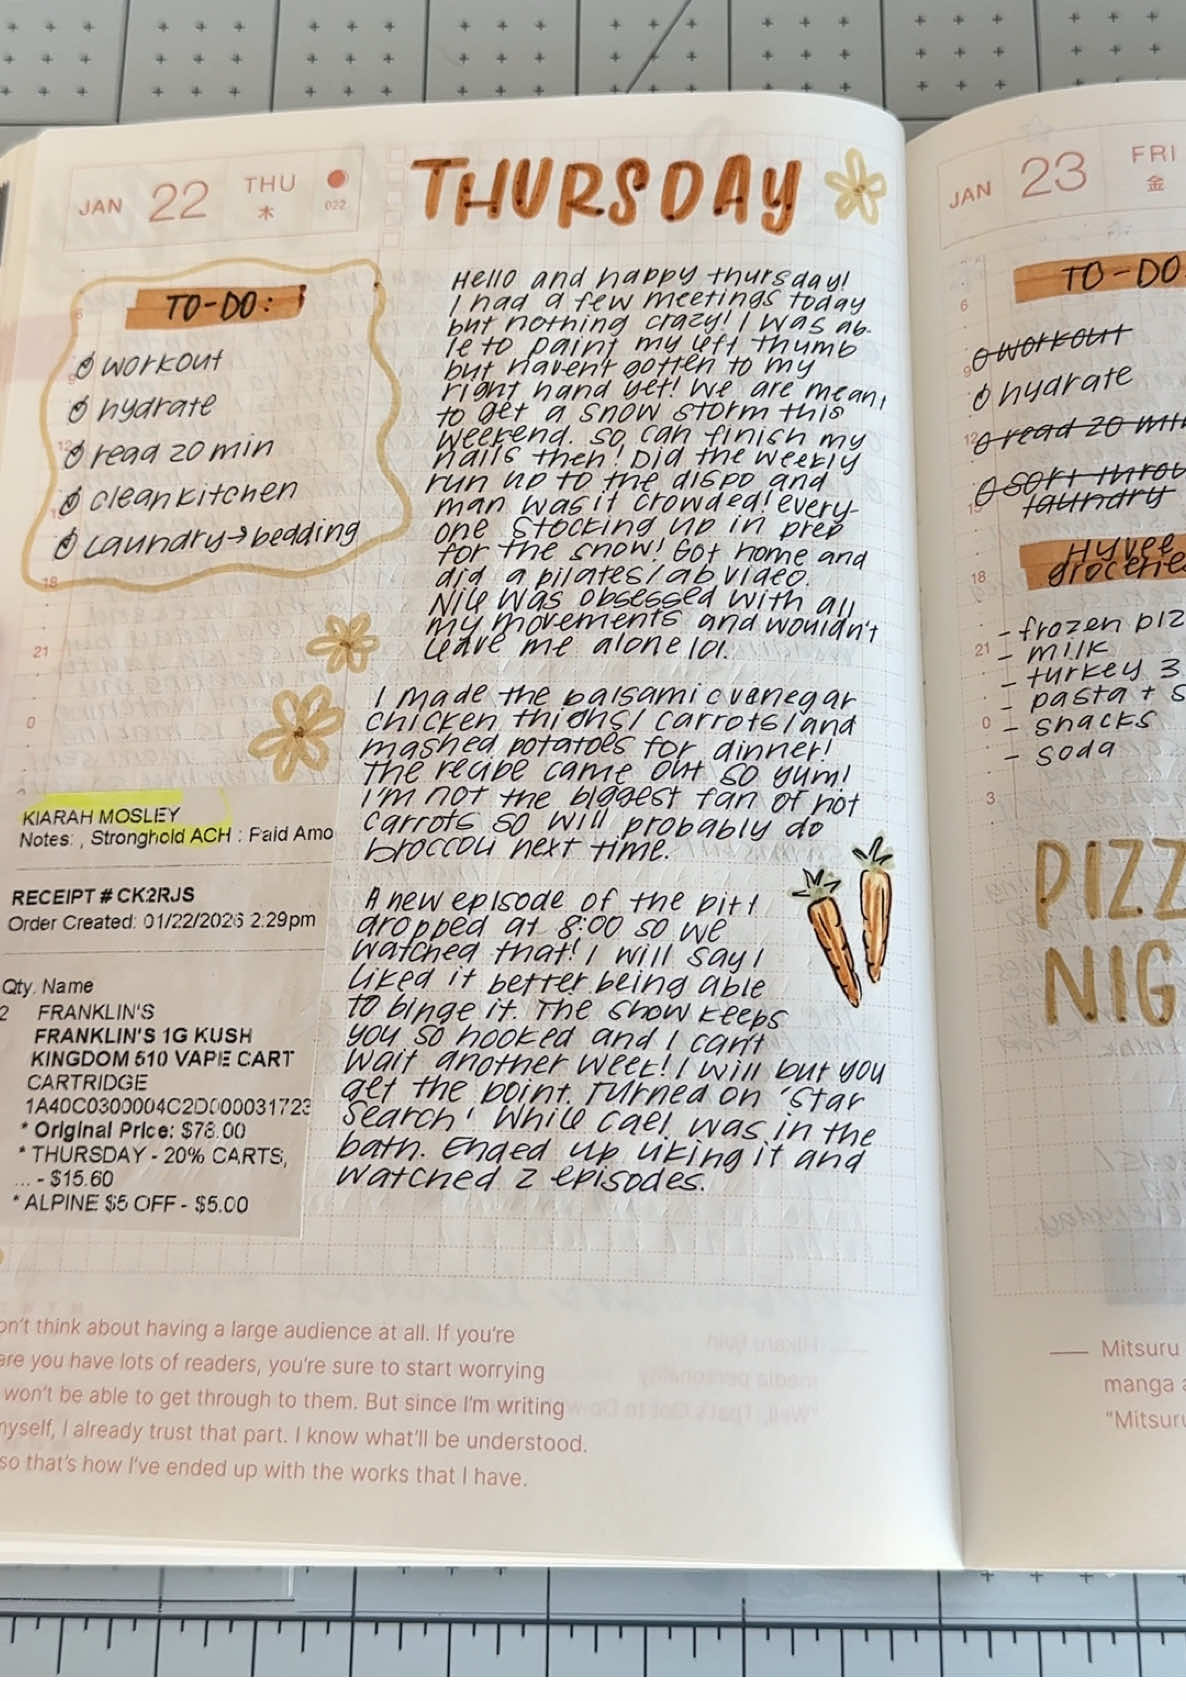 JAN 22 THU
木
022
THURSDAY
TO-DO:
workout
hydrate
read 20 min
clean kitchen
laundry→bedding
6
9
12
15
18
21
0
Hello and happy thursday!
I had a few meetings today
but nothing crazy! I was ab-
le to paint my left thumb
but havent gotten to my
right hand yet! We are meant
to get a snow storm this
weekend. so can finish my
nails then! Did the weekly
run up to the dispo and
man was it crowded! every-
one stocking up in prep
for the snow! Got home and
did a pilates/ab video.
was obsessed with all
my movements and wouldn't
leave me alone lol.
I made the balsamic vinegar
chicken thighs/carrots/and
mashed potatoes for dinner!
The recipe came out so yum!
I'm not the biggest fan of hot
carrots so will probably do
broccoli next time.
A new episode of the pitt
dropped at 8:00 so we
watched that! I will say I
liked it better being able
to binge it. The show keeps
you so hooked and I can't
wait another week! I will but you
get the point. Turned on 'Star
Search' while cael was in the
bath. Ended up liking it and
watched 2 episodes.
KIARAH MOSLEY
Notes: , Stronghold ACH : Paid Amo
RECEIPT # CK2RJS
Order Created: 01/22/2026 2:29pm
Qty. Name
2 FRANKLIN'S
FRANKLIN'S 1G KUSH
KINGDOM 510 VAPE CART
CARTRIDGE
1A40C0300004C2D000031723
* Original Price: $78.00
* THURSDAY - 20% CARTS,
... - $15.60
* ALPINE $5 OFF - $5.00
on't think about having a large audience at all. If you're
are you have lots of readers, you're sure to start worrying
won't be able to get through to them. But since I'm writing
myself, I already trust that part. I know what'll be understood.
so that's how I've ended up with the works that I have.
JAN 23 FRI
金
TO-DO
workout
hydrate
read 20 min
sort throu
laundry
Hyvee
groceries
- frozen pizz
- milk
- turkey 3
- pasta + s
- snacks
- soda
6
9
12
15
18
21
0
3
PIZZ
NIG
Mitsuru
manga a
"Mitsuru